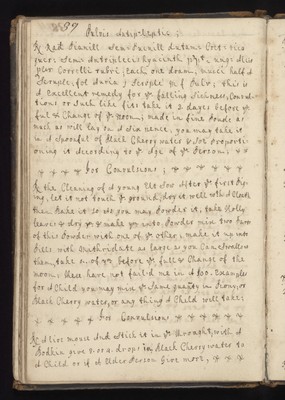 59
Pulvis Antipilepticus;
Rx Rad: Semen Dutans Cort:
Hyacinth ppt: ungs:
Corrallii rubri; each one dram, musci half A
Scruple, fol: Scruple m f Pulv; this is
A Excellent remedy for ye falling Sickness,
tions or Such like fits take it 2 days before ye
full & Change of ye moon; made in fine Powder as
much as will lay on A Six pence, you may take it
in A Spoonful of Black Cherry water & So proporti=
oning it According to ye Age of ye Person,
For Convulsions;
Rx the Cleaning of A young Sow After ye first
ing, let it not touch ye ground, dry it well with A Cloath
then Bake it So As you may Powder it, take Holly
leaves & dry ym & make ym into Powder mix two parts
of this Powder with one of ye other, make it up into
Pills with Mithridate as large as you Can Swallow
them, take of ym before ye full & Change of the
moon; these have not failed me in A 100 Examples
for A Child you may mix ye Same quantity in
Black Cherry water, or any thing A Child will take;
For Convulsions
Rx A live mouse And Stick it in ye throught, with A
Bodkin give 3 or 4 drops in Black Cherry water to
A Child or if A Older Person Give more,